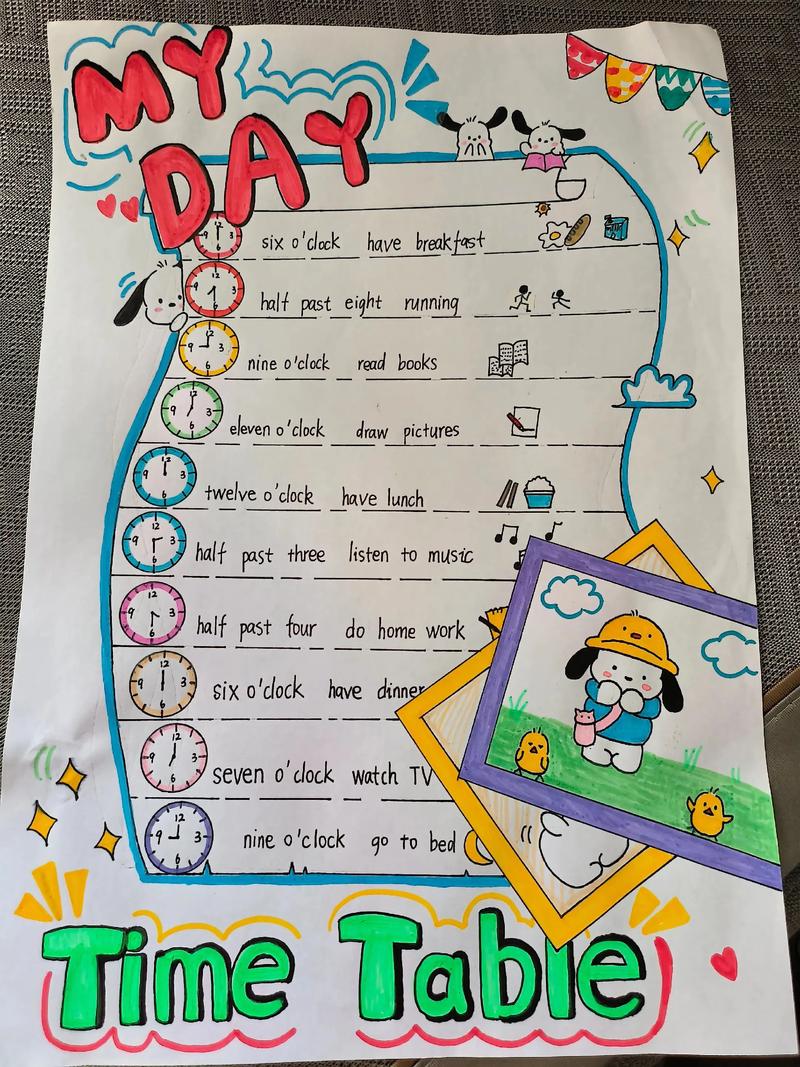 MY
DAY
six o'clock have breakfast
half past eight running
nine o'clock read books
eleven o'clock draw pictures
twelve o'clock have lunch
half past three listen to music
half past four do home work
six o'clock have dinner
seven o'clock watch TV
nine o'clock go to bed
Time Table